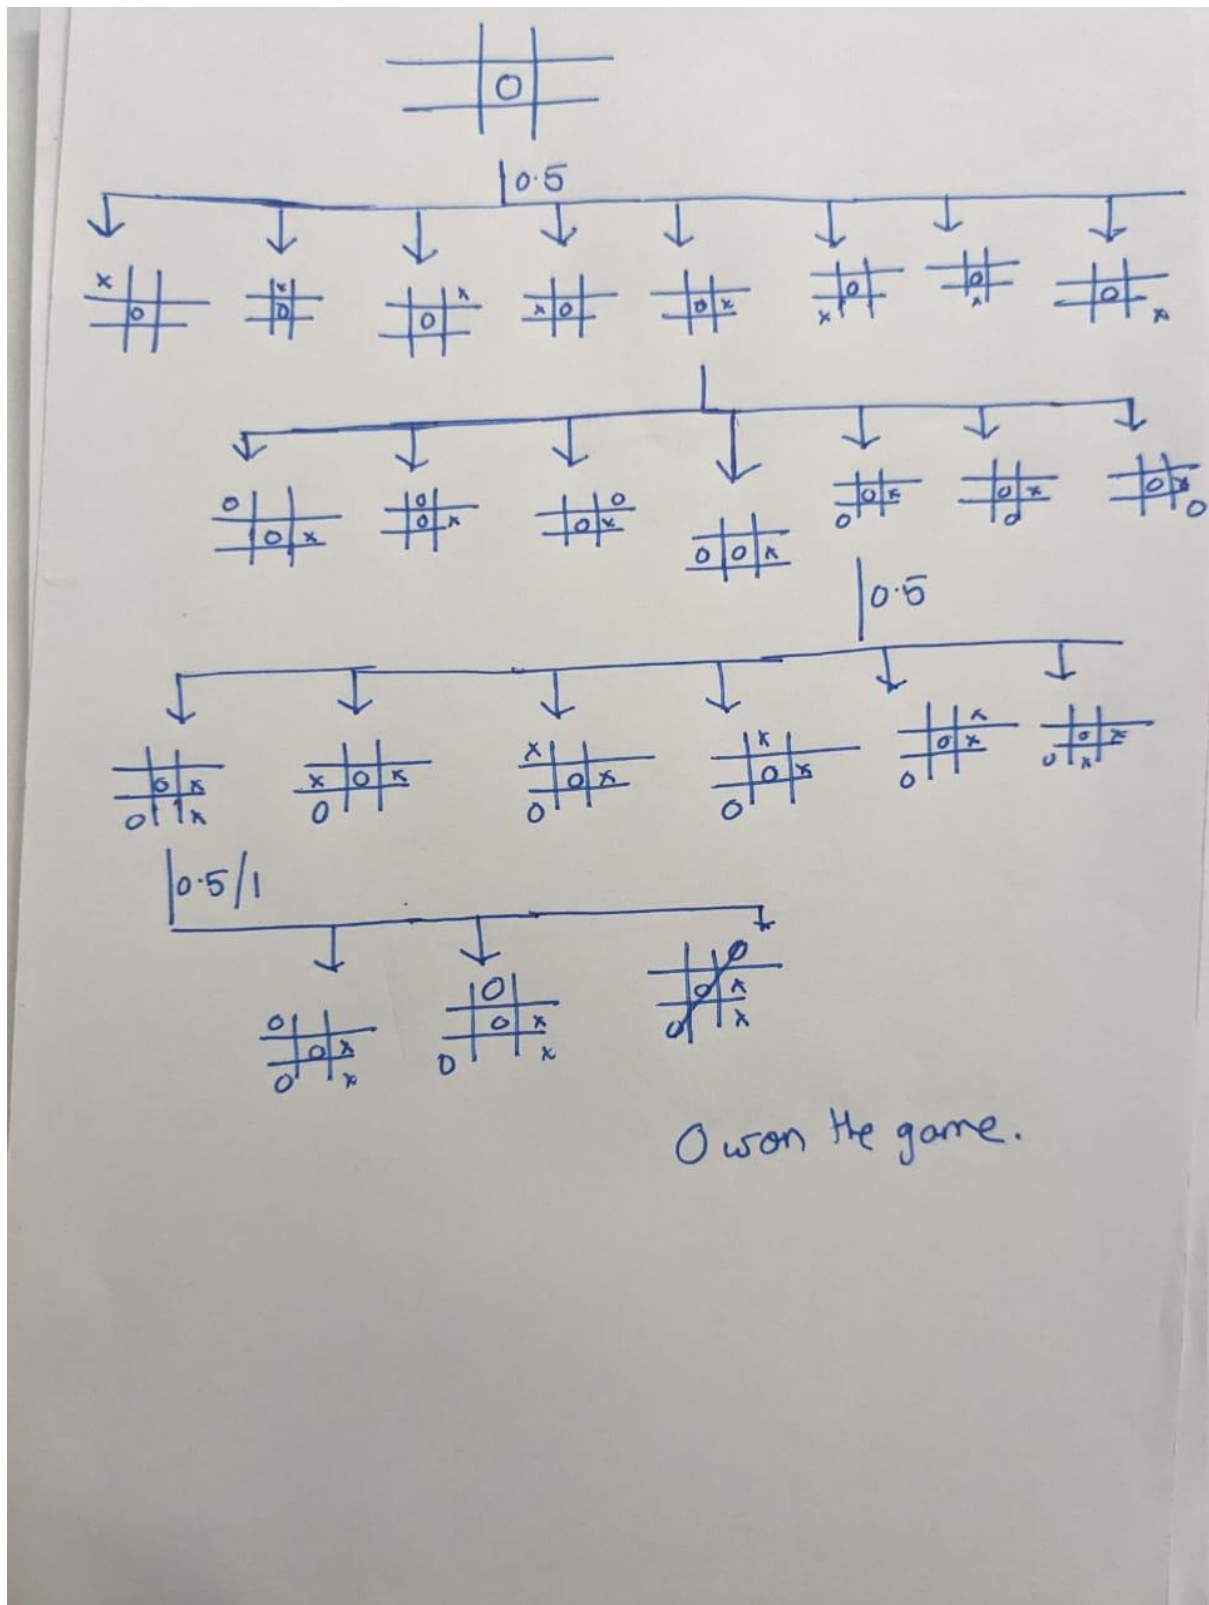 O
0.5
x x x x O O x O O x O x O O x
O O O x
O O O O O x O x O x
O x O x O x O O x O O x
O
0.5
x x x
O x x O x O x O x O x O x
O x O O O O x
0.5/1
O O O
O x O x O x
O x O x O x
O won the game.